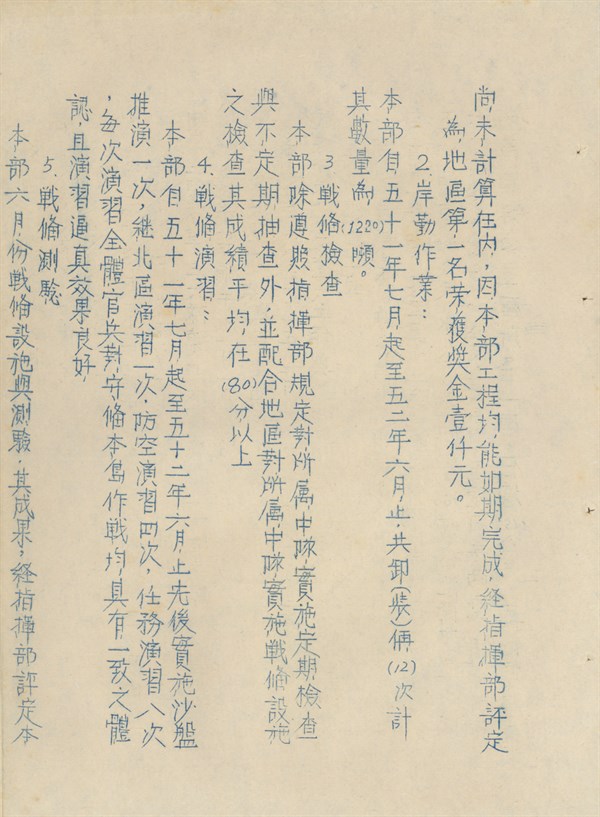 尚未計算在內，因本部工程均能如期完成，経指揮部評定
為地區第一名荣獲獎金壹仟元。
2.岸勤作業：
本部自五十一年七月起至五二年六月止．共卸(裝)俩(12)次計
其數量為(1220)頓。
3 戰俻檢查
本部除遵照指揮部規定對所属中隊實施定期檢查
與不定期抽查外，並配合地區對所属中隊實施戰俻設施
之檢查其成績平均在(80)分以上
4.戰俻演習：
本部自五十一年七月起至五十二年六月止先後實施沙盤
推演一次，継北區演習一次，防空演習四次，任務演習八次
，每次演習全體官兵對守俻本島作戰均具有一致之體
認，且演習逼真效果良好
5.戰俻測驗
本部六月份戰俻設施與測驗．其成果，経指揮部評定本